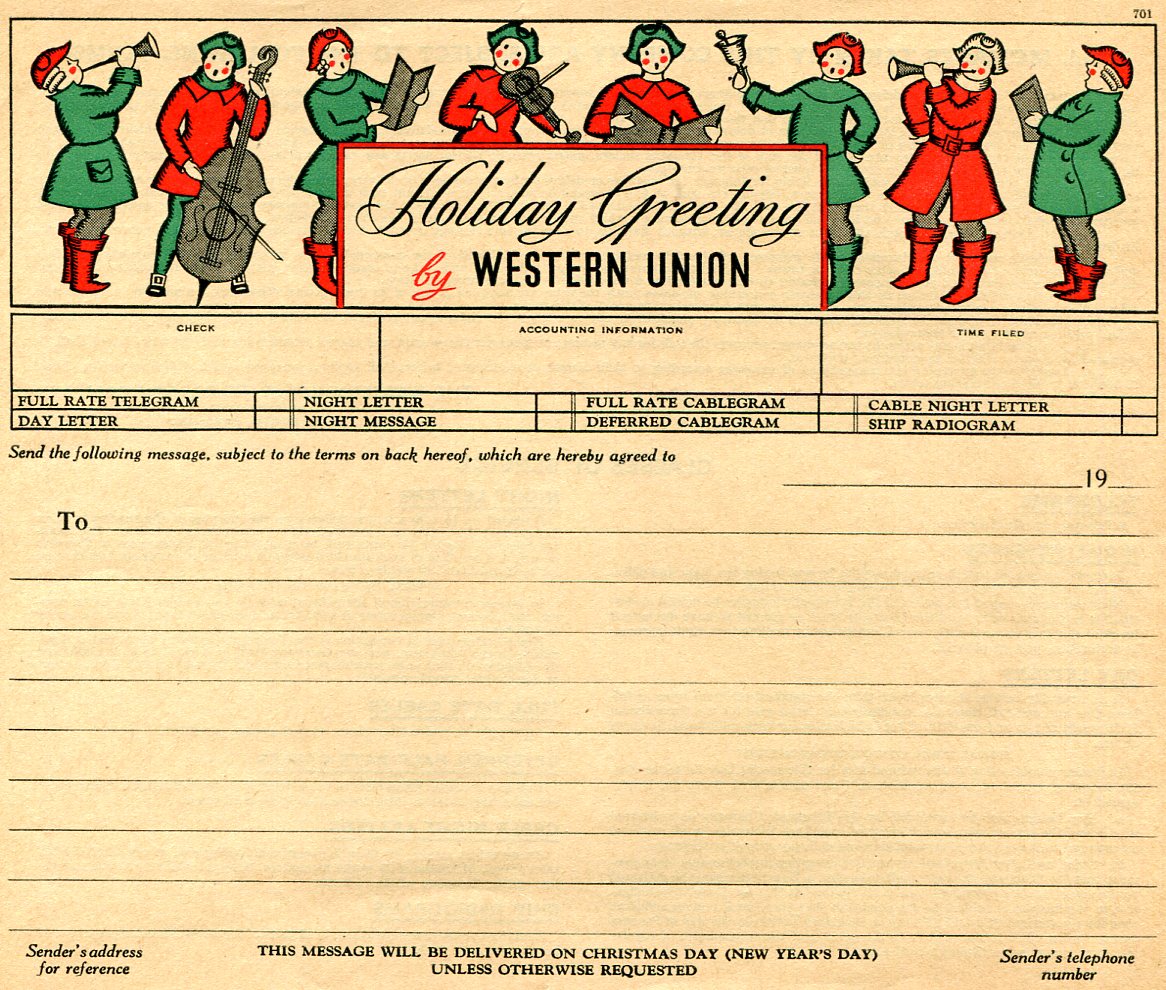 701
Holiday Greeting
by WESTERN UNION
CHECK
ACCOUNTING INFORMATION
TIME FILED
FULL RATE TELEGRAM
NIGHT LETTER
FULL RATE CABLEGRAM
CABLE NIGHT LETTER
DAY LETTER
NIGHT MESSAGE
DEFERRED CABLEGRAM
SHIP RADIOGRAM
Send the following message, subject to the terms on back hereof, which are hereby agreed to
19
To
Sender's address
for reference
THIS MESSAGE WILL BE DELIVERED ON CHRISTMAS DAY (NEW YEAR'S DAY)
UNLESS OTHERWISE REQUESTED
Sender's telephone
number